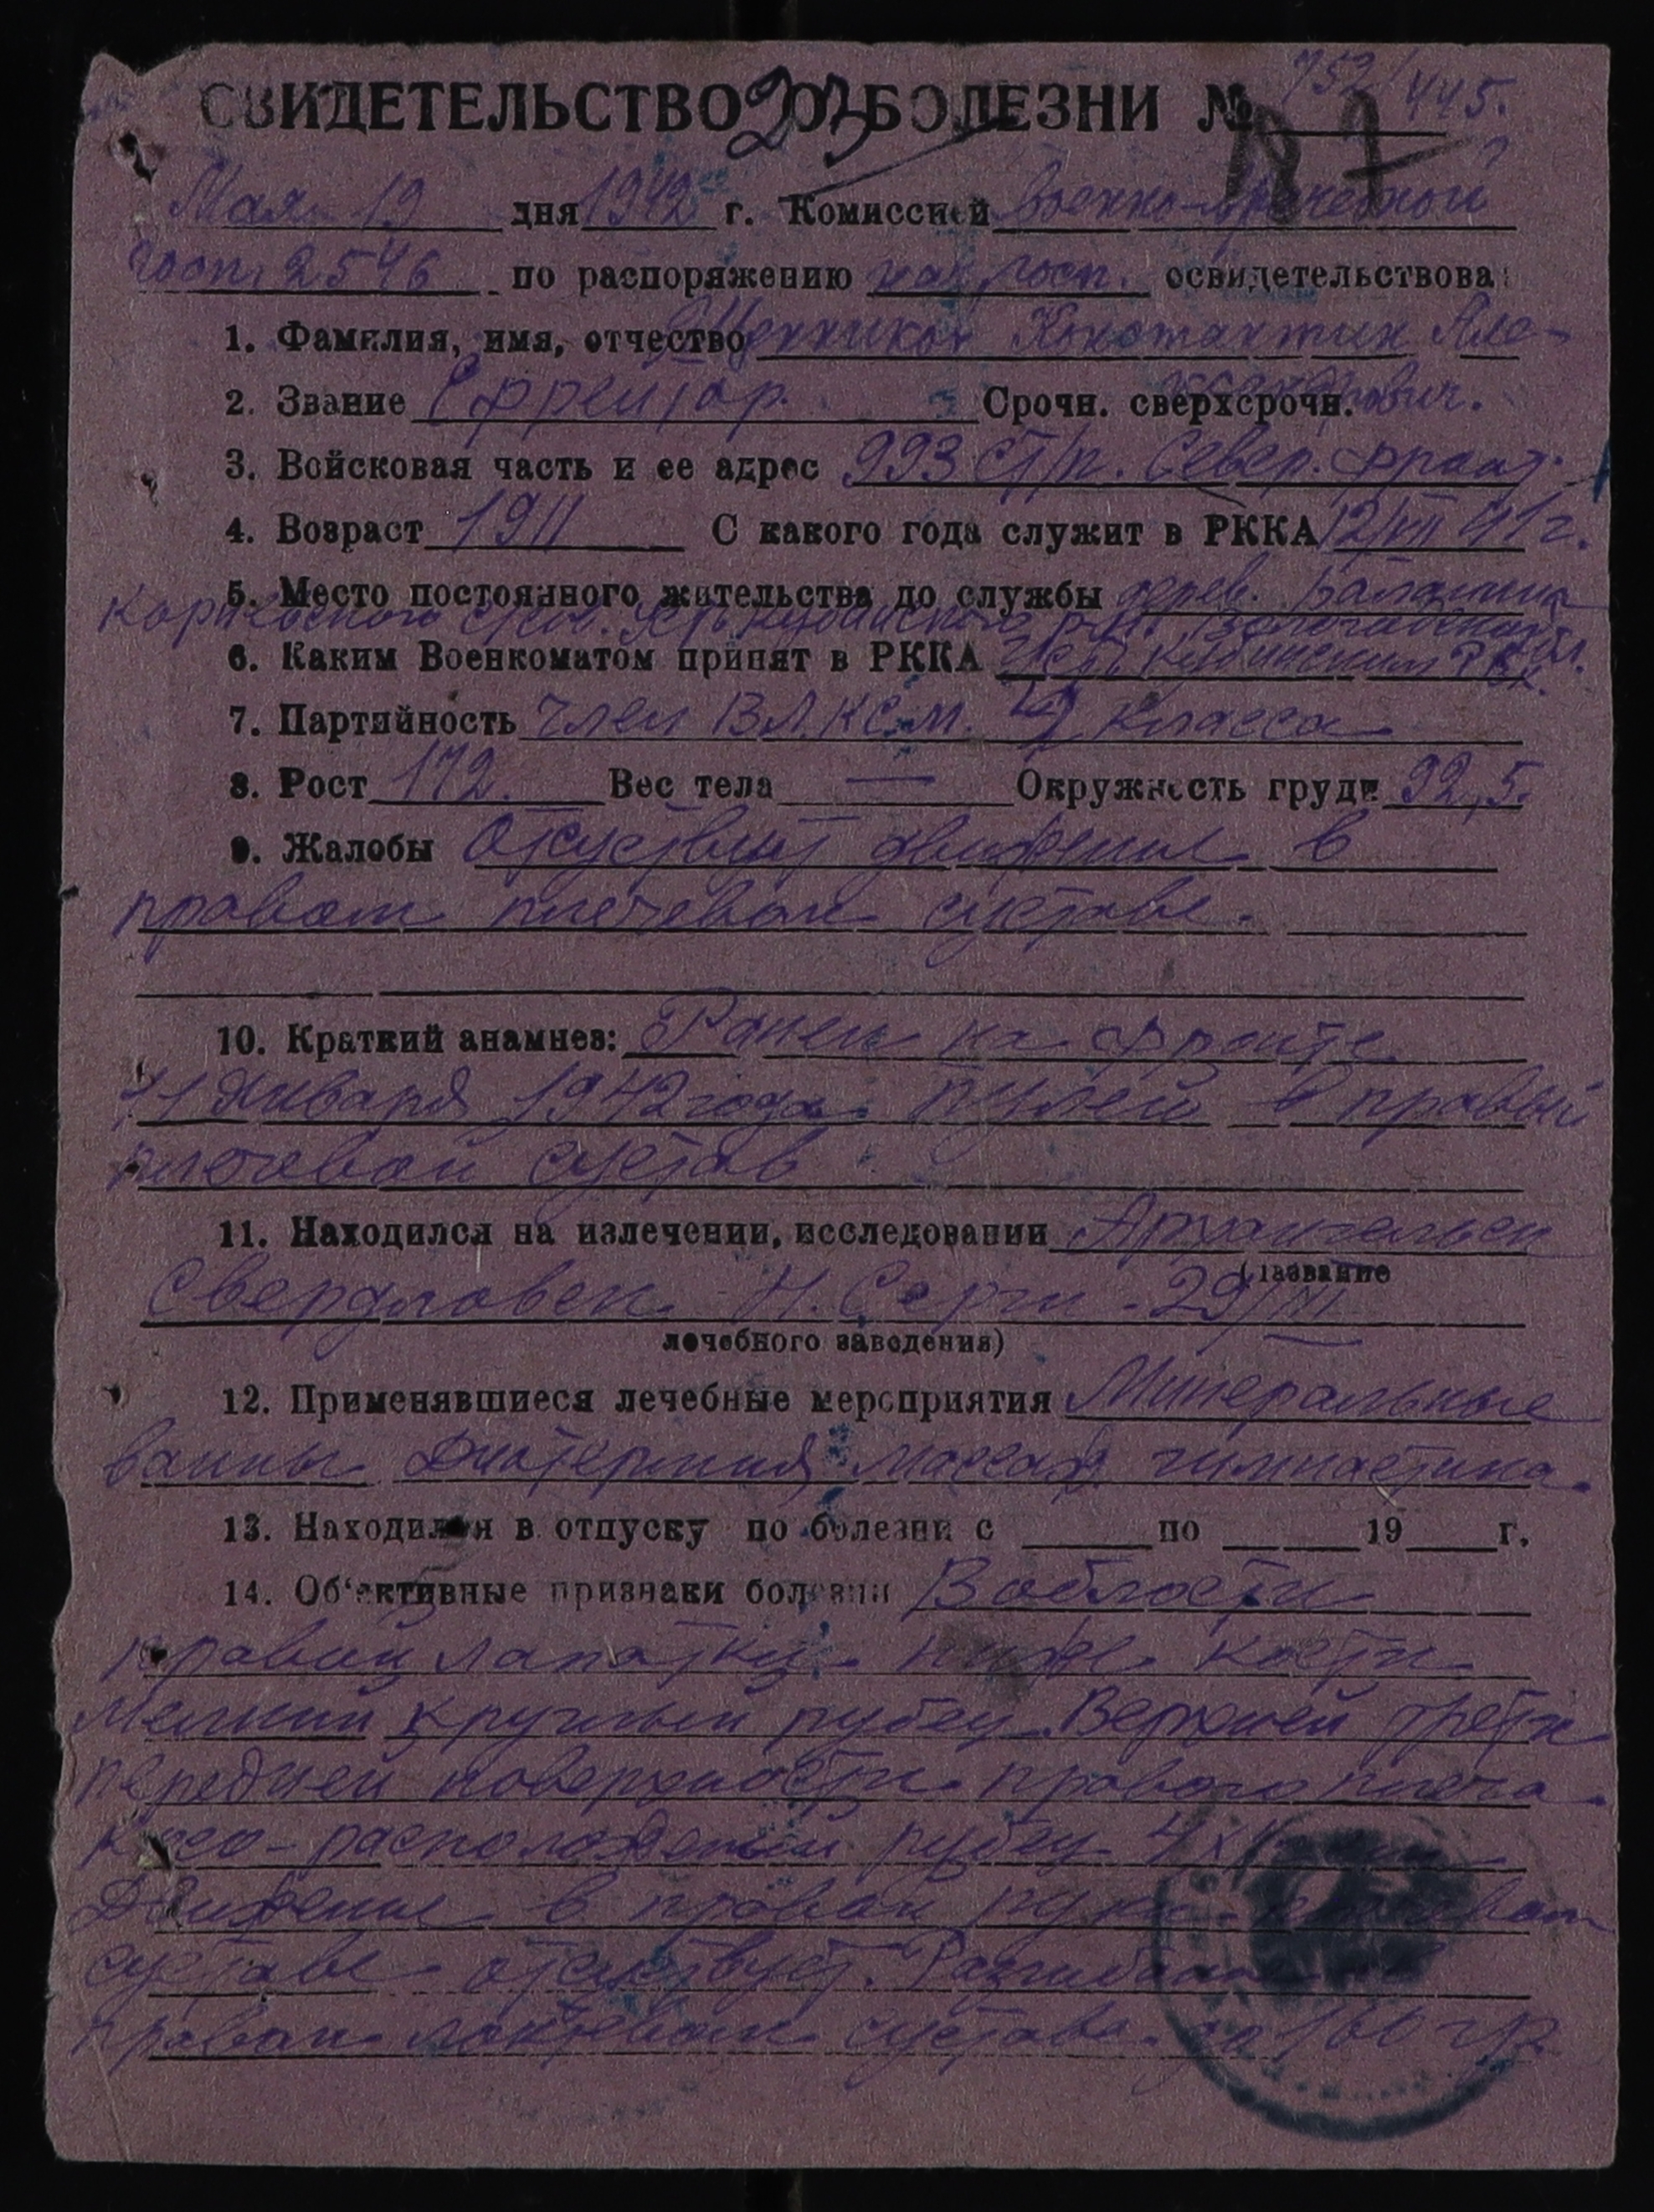 СВИДЕТЕЛЬСТВО О БОЛЕЗНИ № 752/445.
203 187
Мая 19 дня 1942 г. Комиссией военно-врачебной
госп. 2546 по распоряжению нач. госп. освидетельствова
1. Фамилия, имя, отчество Константин Але-
ксандрович.
2. Звание Ефрейтор. Срочн. сверхсрочн.
3. Войсковая часть и ее адрес 993 ст/п. Север. фронт.
4. Возраст 1911 С какого года служит в РККА 12/VII 41 г.
5. Место постоянного жительства до службы дерев.
Усть Кубинского р-н. Вологодской обл.
6. Каким Военкоматом принят в РККА Усть Кубинским РВК.
7. Партийность член ВЛКСМ. класса
8. Рост 172. Вес тела — Окружность груди 92,5.
9. Жалобы Отсуствит движение в
правом плечевом суставе.
10. Краткий анамнез: Ранен на фронте
11 Января 1942 года пулей в правый
плечевой сустав
11. Находился на излечении, исследовании Архангельск
(название
Свердловск Н. Серги - 29/III
лечебного заведения)
12. Применявшиеся лечебные мероприятия Минеральные
ванны Диатермия, массаж гимнастика.
13. Находился в отпуску по болезни с по 19 г.
14. Об‘ективные признаки болезни В области
правой лапатки ниже кости
мелкий круглый рубец Верхней трети
передней поверхности правого плеча
косо-расположеный рубец 4х
Движение в правом плечевом
суставе отсуствует. Разгибание
правом локтевом суставе до 160 гр.